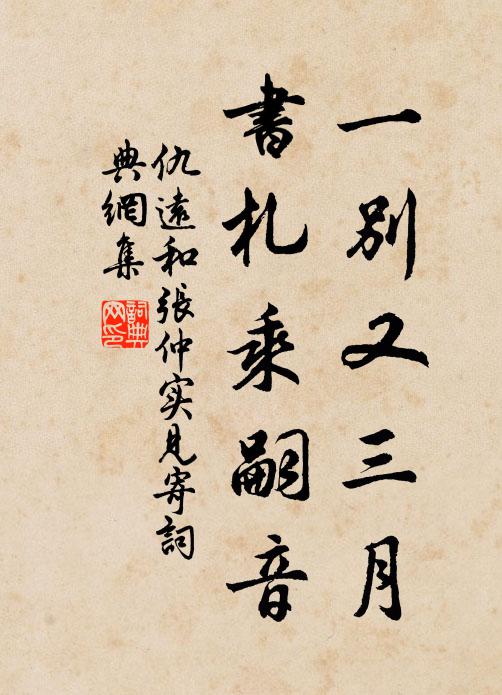 一别又三月
書札乘嗣音
仇遠和張仲实見寄詞
典網集
詞典
网印